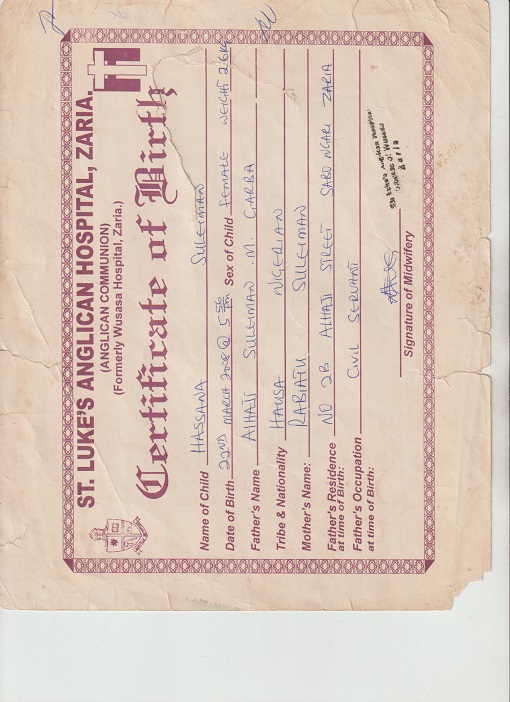 ST. LUKE'S ANGLICAN HOSPITAL, ZARIA.
(ANGLICAN COMMUNION)
(Formerly Wusasa Hospital, Zaria.)
Certificate of Birth
Name of Child HASSANA SULEIMAN
Date of Birth 22ND MARCH 2008 @ 5 PM Sex of Child FEMALE WEIGHT 2.6KG
Father's Name ALHAJI SULEIMAN .M. GARBA
Tribe & Nationality HAUSA NIGERIAN
Mother's Name: RABIATU SULEIMAN
Father's Residence NO 2B ALHAJI STREET SABO NGARI ZARIA
at time of Birth:
Father's Occupation CIVIL SERVANT
at time of Birth:
Anglican Hospital
Wusasa
Zaria
Signature of Midwifery